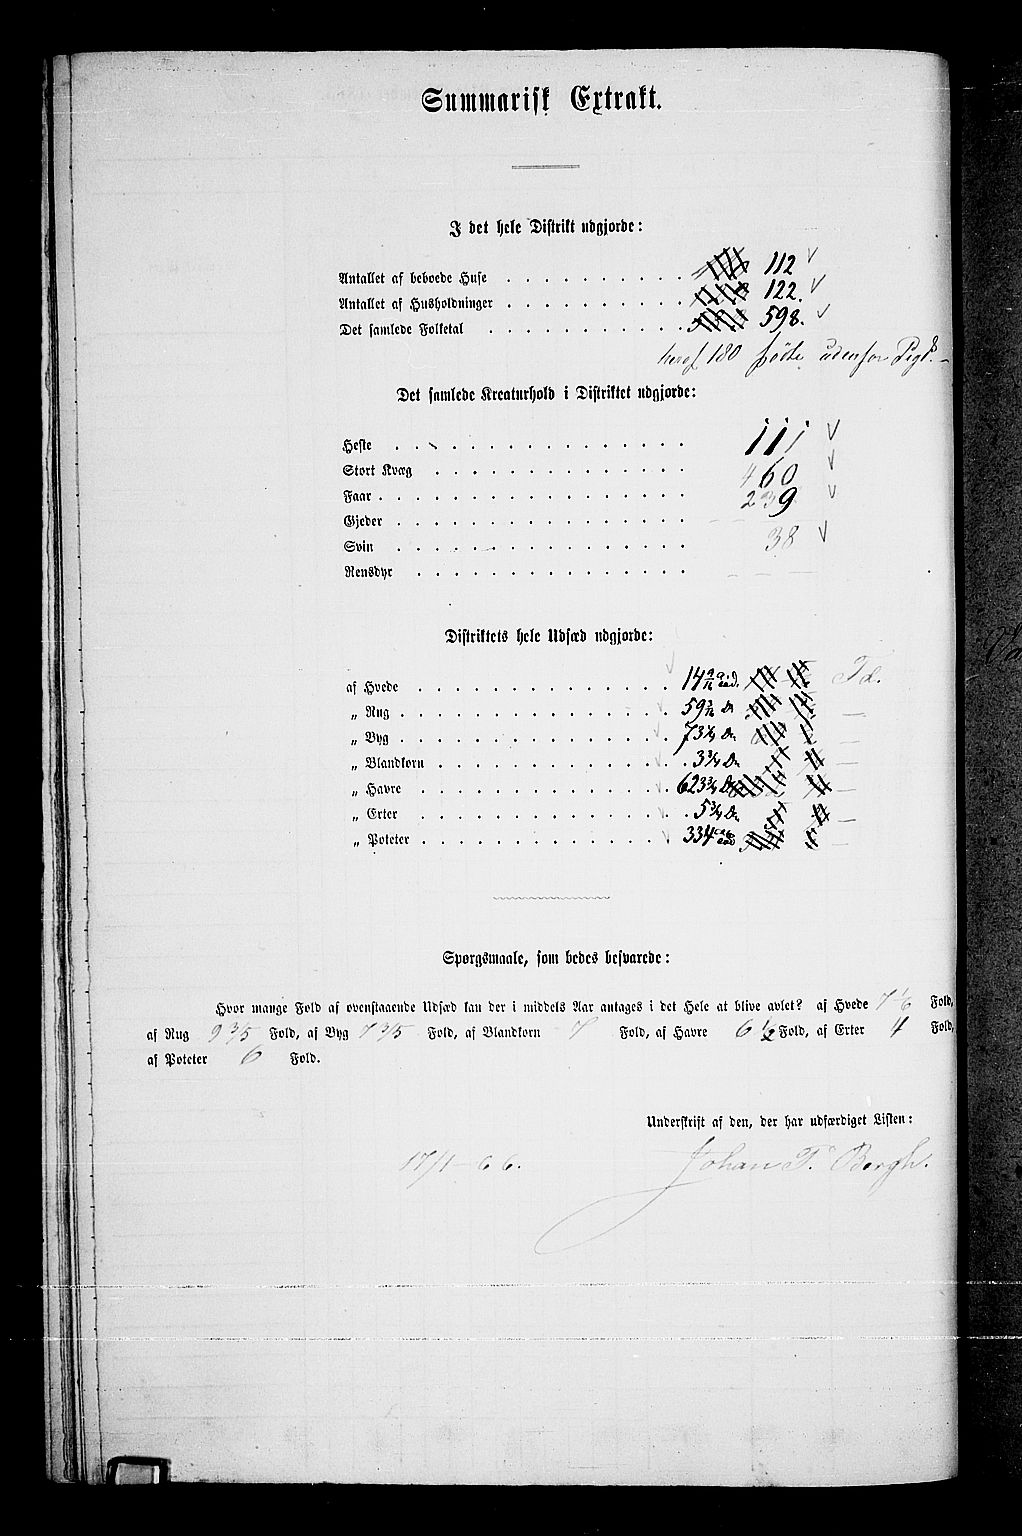 Summarisk Extrakt.
I det hele Distrikt udgjorde:
Antallet af beboede Huse . . . . . . . . . . 112
Antallet af Husholdninger . . . . . . . . . . 122.
Det samlede Folketal . . . . . . . . . . . 598.
heraf 180 fødte udenfor
Det samlede Kreaturhold i Distriktet udgjorde:
Heste . . . . . . . . . . . . . . . . 111
Stort Kvæg . . . . . . . . . . . . . . 460
Faar . . . . . . . . . . . . . . . . . 239
Gjeder . . . . . . . . . . . . . . . . —
Svin . . . . . . . . . . . . . . . . 38
Rensdyr . . . . . . . . . . . . . . . —
Distriktets hele Udsæd udgjorde:
af Hvede . . . . . . . . . . . . . . 14 Td.
„ Rug . . . . . . . . . . . . . . . 59 —
„ Byg . . . . . . . . . . . . . . . 73 —
„ Blandkorn . . . . . . . . . . . . . 3 3/4 —
„ Havre . . . . . . . . . . . . . . 623 3/4 —
„ Erter . . . . . . . . . . . . . . 5 3/4 —
„ Poteter . . . . . . . . . . . . . . 334 —
Spørgsmaale, som bedes besvarede:
Hvor mange Fold af ovenstaaende Udsæd kan der i middels Aar antages i det Hele at blive avlet? af Hvede 7 1/6 Fold,
af Rug 9 3/5 Fold, af Byg 7 3/5 Fold, af Blandkorn 7 Fold, af Havre 6 1/2 Fold, af Erter 4 Fold,
af Poteter 6 Fold.
Underskrift af den, der har udfærdiget Listen:
17/1–66. Johan T. Bergh.